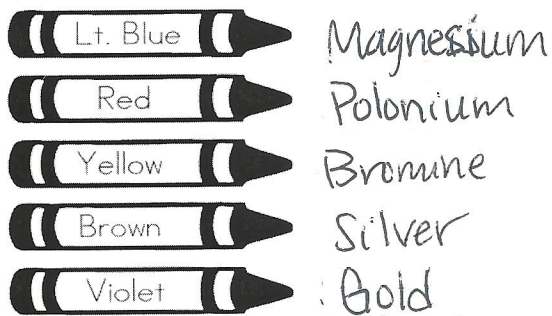 Lt. Blue Magnesium
Red Polonium
Yellow Bromine
Brown Silver
Violet Gold